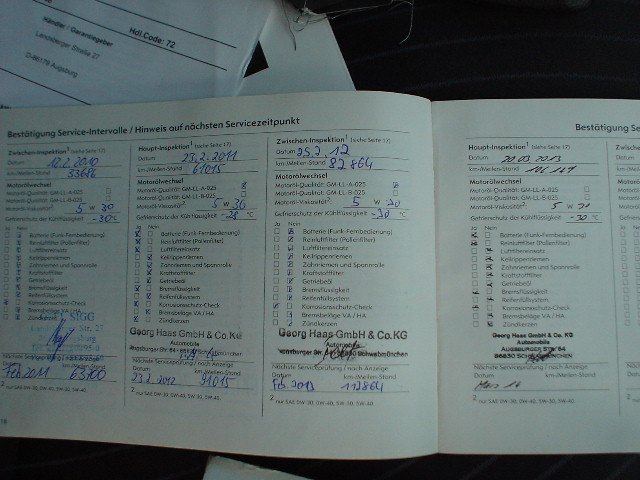 Händler / Garantiegeber
Hdl.Code: 72
Landsberger Straße 27
D-86179 Augsburg
Bestätigung Service-Intervalle / Hinweis auf nächsten Servicezeitpunkt
Zwischen-Inspektion¹ (siehe Seite 17)
Datum 12.2.2010
km-/Meilen-Stand 53686
Motorölwechsel
Motoröl-Qualität: GM-LL-A-025
Motoröl-Qualität: GM-LL-B-025
Motoröl-Viskosität² 5 W 30
Gefrierschutz der Kühlflüssigkeit -30 °C
Ja Nein
Batterie (Funk-Fernbedienung)
Reinluftfilter (Pollenfilter)
Luftfiltereinsatz
Keilrippenriemen
Zahnriemen und Spannrolle
Kraftstofffilter
Getriebeöl
Bremsflüssigkeit
Reifenfüllsystem
Korrosionsschutz-Check
Bremsbeläge VA / HA
Zündkerzen
SIGG
Nächste Serviceprüfung / nach Anzeige
Datum km-/Meilen-Stand
Feb 2011 83700
² nur SAE 0W-30, 0W-40, 5W-30, 5W-40.
Haupt-Inspektion¹ (siehe Seite 17)
Datum 23.2.2011
km-/Meilen-Stand 61015
Motorölwechsel
Motoröl-Qualität: GM-LL-A-025
Motoröl-Qualität: GM-LL-B-025
Motoröl-Viskosität² 5 W 30
Gefrierschutz der Kühlflüssigkeit -28 °C
Ja Nein
Batterie (Funk-Fernbedienung)
Reinluftfilter (Pollenfilter)
Luftfiltereinsatz
Keilrippenriemen
Zahnriemen und Spannrolle
Kraftstofffilter
Getriebeöl
Bremsflüssigkeit
Reifenfüllsystem
Korrosionsschutz-Check
Bremsbeläge VA / HA
Zündkerzen
Georg Haas GmbH & Co. KG
Automobile
Nächste Serviceprüfung / nach Anzeige
Datum km-/Meilen-Stand
23.2.2012 91015
² nur SAE 0W-30, 0W-40, 5W-30, 5W-40.
Zwischen-Inspektion¹ (siehe Seite 17)
Datum 25.2.12
km-/Meilen-Stand 82864
Motorölwechsel
Motoröl-Qualität: GM-LL-A-025
Motoröl-Qualität: GM-LL-B-025
Motoröl-Viskosität² 5 W 30
Gefrierschutz der Kühlflüssigkeit -30 °C
Ja Nein
Batterie (Funk-Fernbedienung)
Reinluftfilter (Pollenfilter)
Luftfiltereinsatz
Keilrippenriemen
Zahnriemen und Spannrolle
Kraftstofffilter
Getriebeöl
Bremsflüssigkeit
Reifenfüllsystem
Korrosionsschutz-Check
Bremsbeläge VA / HA
Zündkerzen
Georg Haas GmbH & Co. KG
Automobile
Nächste Serviceprüfung / nach Anzeige
Datum km-/Meilen-Stand
Feb. 2013 112864
² nur SAE 0W-30, 0W-40, 5W-30, 5W-40.
Bestätigung Se
Haupt-Inspektion¹ (siehe Seite 17)
Datum 20.03.2013
km-/Meilen-Stand
Motorölwechsel
Motoröl-Qualität: GM-LL-A-025
Motoröl-Qualität: GM-LL-B-025
Motoröl-Viskosität² 5 W 30
Gefrierschutz der Kühlflüssigkeit -30 °C
Ja Nein
Batterie (Funk-Fernbedienung)
Reinluftfilter (Pollenfilter)
Luftfiltereinsatz
Keilrippenriemen
Zahnriemen und Spannrolle
Kraftstofffilter
Getriebeöl
Bremsflüssigkeit
Reifenfüllsystem
Korrosionsschutz-Check
Bremsbeläge VA / HA
Zündkerzen
Georg Haas GmbH & Co. KG
Automobile
AUGSBURGER STR. 64
86830 SCHWABMÜNCHEN
Nächste Serviceprüfung / nach Anzeige
Datum km-/Meilen-Stand
² nur SAE 0W-30, 0W-40, 5W-30, 5W-40.